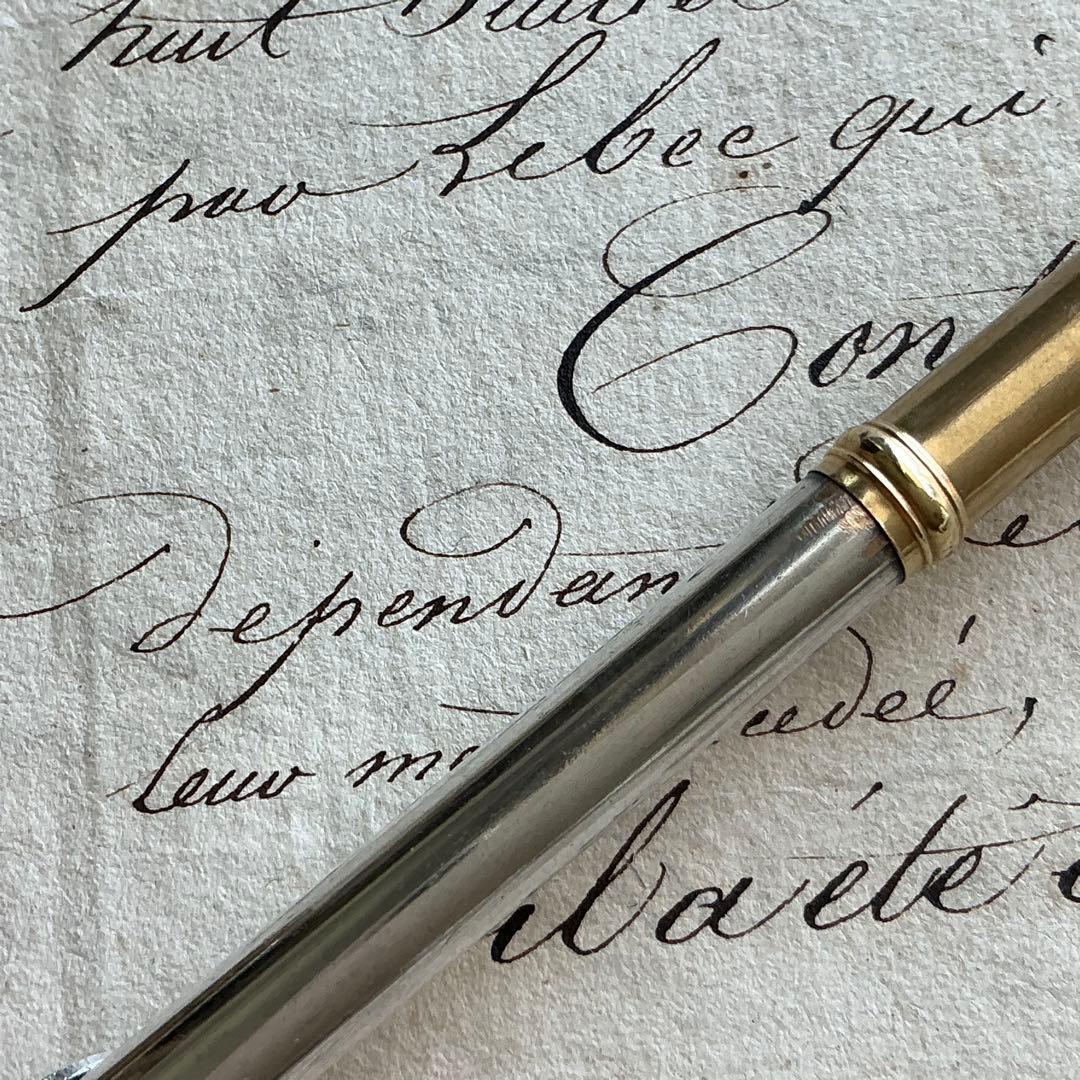 huit
par Lebec qui
Con
dependan
leur m
il a été